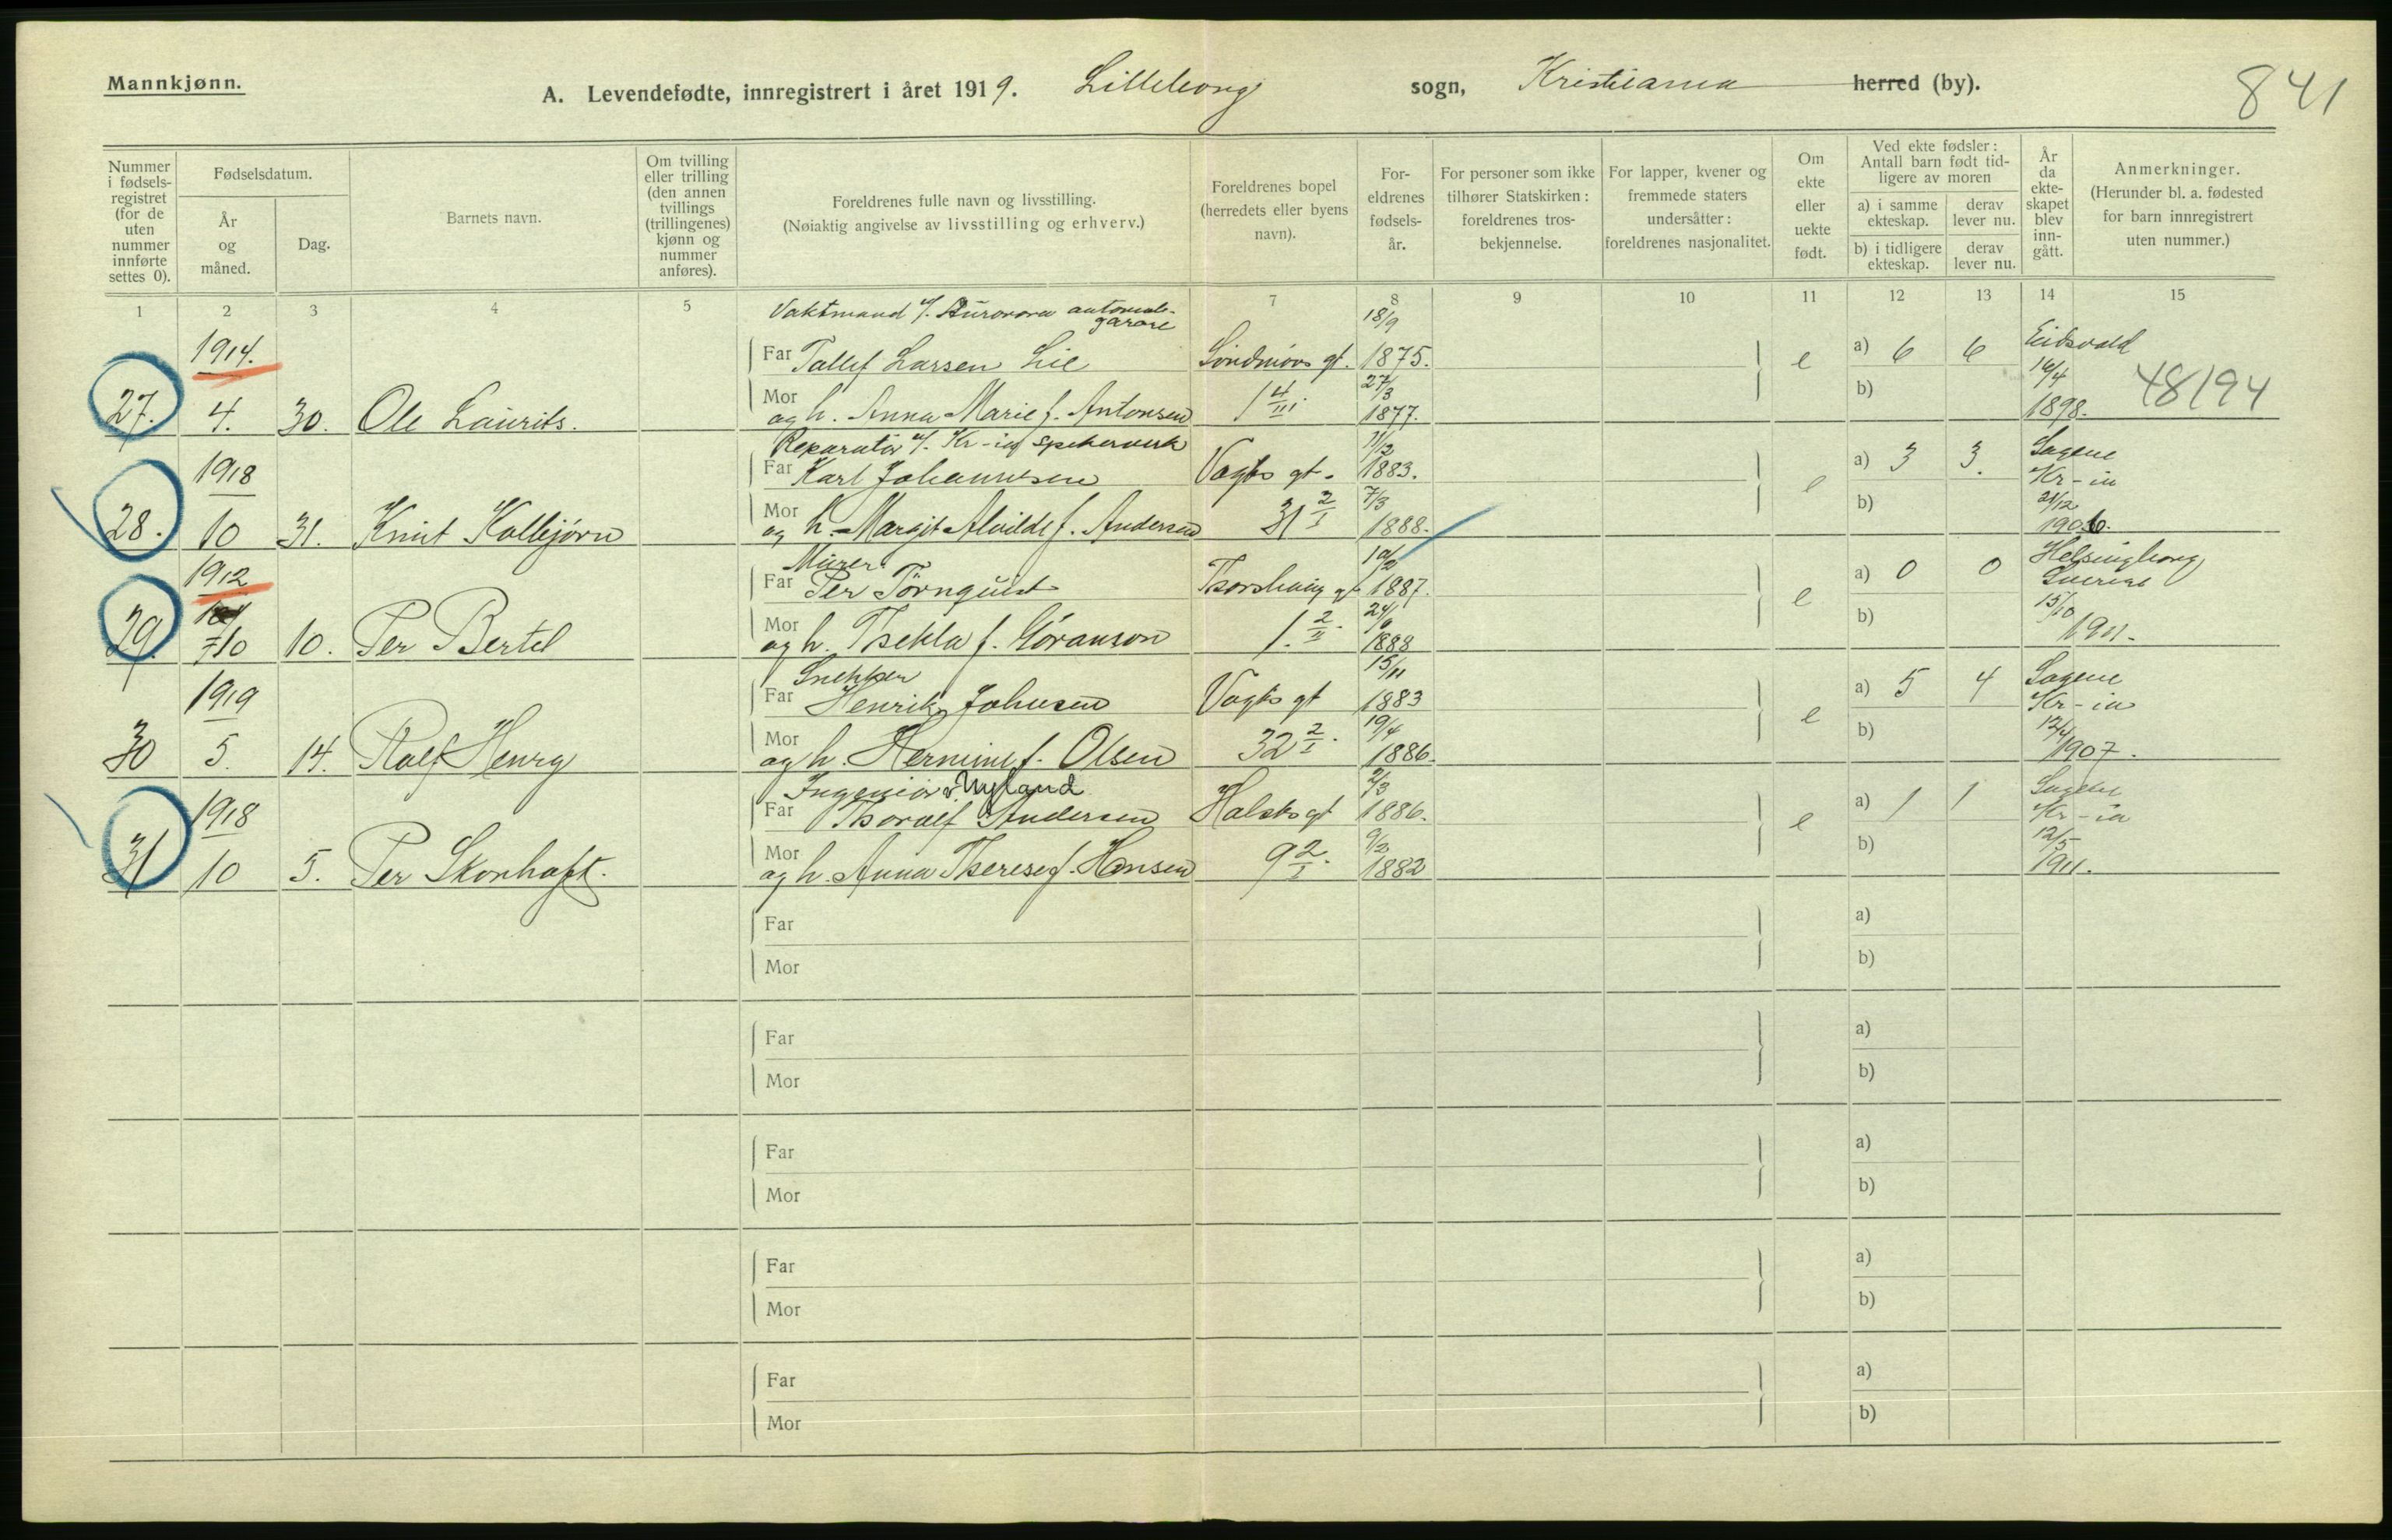 Mannkjønn.
A. Levendefødte, innregistrert i året 1919. Lilleborg sogn, Kristiania herred (by).
841
Nummer i fødsels-registret (for de uten nummer innførte settes 0).
Fødselsdatum.
År og måned.
Dag.
Barnets navn.
Om tvilling eller trilling (den annen tvillings (trillingenes) kjønn og nummer anføres).
Foreldrenes fulle navn og livsstilling.
(Nøiaktig angivelse av livsstilling og erhverv.)
Foreldrenes bopel (herredets eller byens navn).
For-eldrenes fødsels-år.
For personer som ikke tilhører Statskirken: foreldrenes tros-bekjennelse.
For lapper, kvener og fremmede staters undersåtter: foreldrenes nasjonalitet.
Om ekte eller uekte født.
Ved ekte fødsler: Antall barn født tid-ligere av moren
a) i samme ekteskap.
derav lever nu.
b) i tidligere ekteskap.
derav lever nu.
År da ekte-skapet blev inn-gått.
Anmerkninger.
(Herunder bl. a. fødested for barn innregistrert uten nummer.)
1 2 3 4 5 7 8 9 10 11 12 13 14 15
Vaktmand v/. Aurorora automob-garage 18/9
1914. Far Tallef Larsen Lie Søndmørs gt. 1875. e a) 6 6 Eidsvold
27. 4. 30. Ole Laurits. Mor og h. Anna Marie f. Antonsen 1 4/III. 27/3 1877. b) 16/4 1898. 48194
Reparatør v/. Kr-ia spikerverk 11/2
1918 Far Karl Johannesen Vogts gt. 1883. e a) 3 3. Sagene Kr-ia
28. 10 31. Knut Kolbjørn Mor og h. Margit Alvilde f. Andersen 31 2/I 7/3 1888. b) 21/12 1906.
Murer
1912 Far Per Törnquist Thorshaug gt 1887. e a) 0 0 Helsingborg Sverige
29. 10 10. Per Bertel Mor og h. Thekla f. Göranson 1. 2/II 24/6 1888 b) 15/10 1911.
Snekker 15/11
1919 Far Henrik Johnsen Vogts gt 1883 e a) 5 4 Sagene Kr-ia
30 5. 14. Rolf Henry Mor og h. Hermine f. Olsen 32 2/I. 19/4 1886. b) 12/4 1907.
Ingeniør v Nyland 2/3
1918 Far Thoralf Andersen Holsts gt 1886. e a) 1 1 Sagene Kr-ia
31 10 5. Per Skonhoft. Mor og h. Anna Therese f. Hansen 9 2/I. 9/2 1882 b) 12/5 1911.
Far a)
Mor b)
Far a)
Mor b)
Far a)
Mor b)
Far a)
Mor b)
Far a)
Mor b)